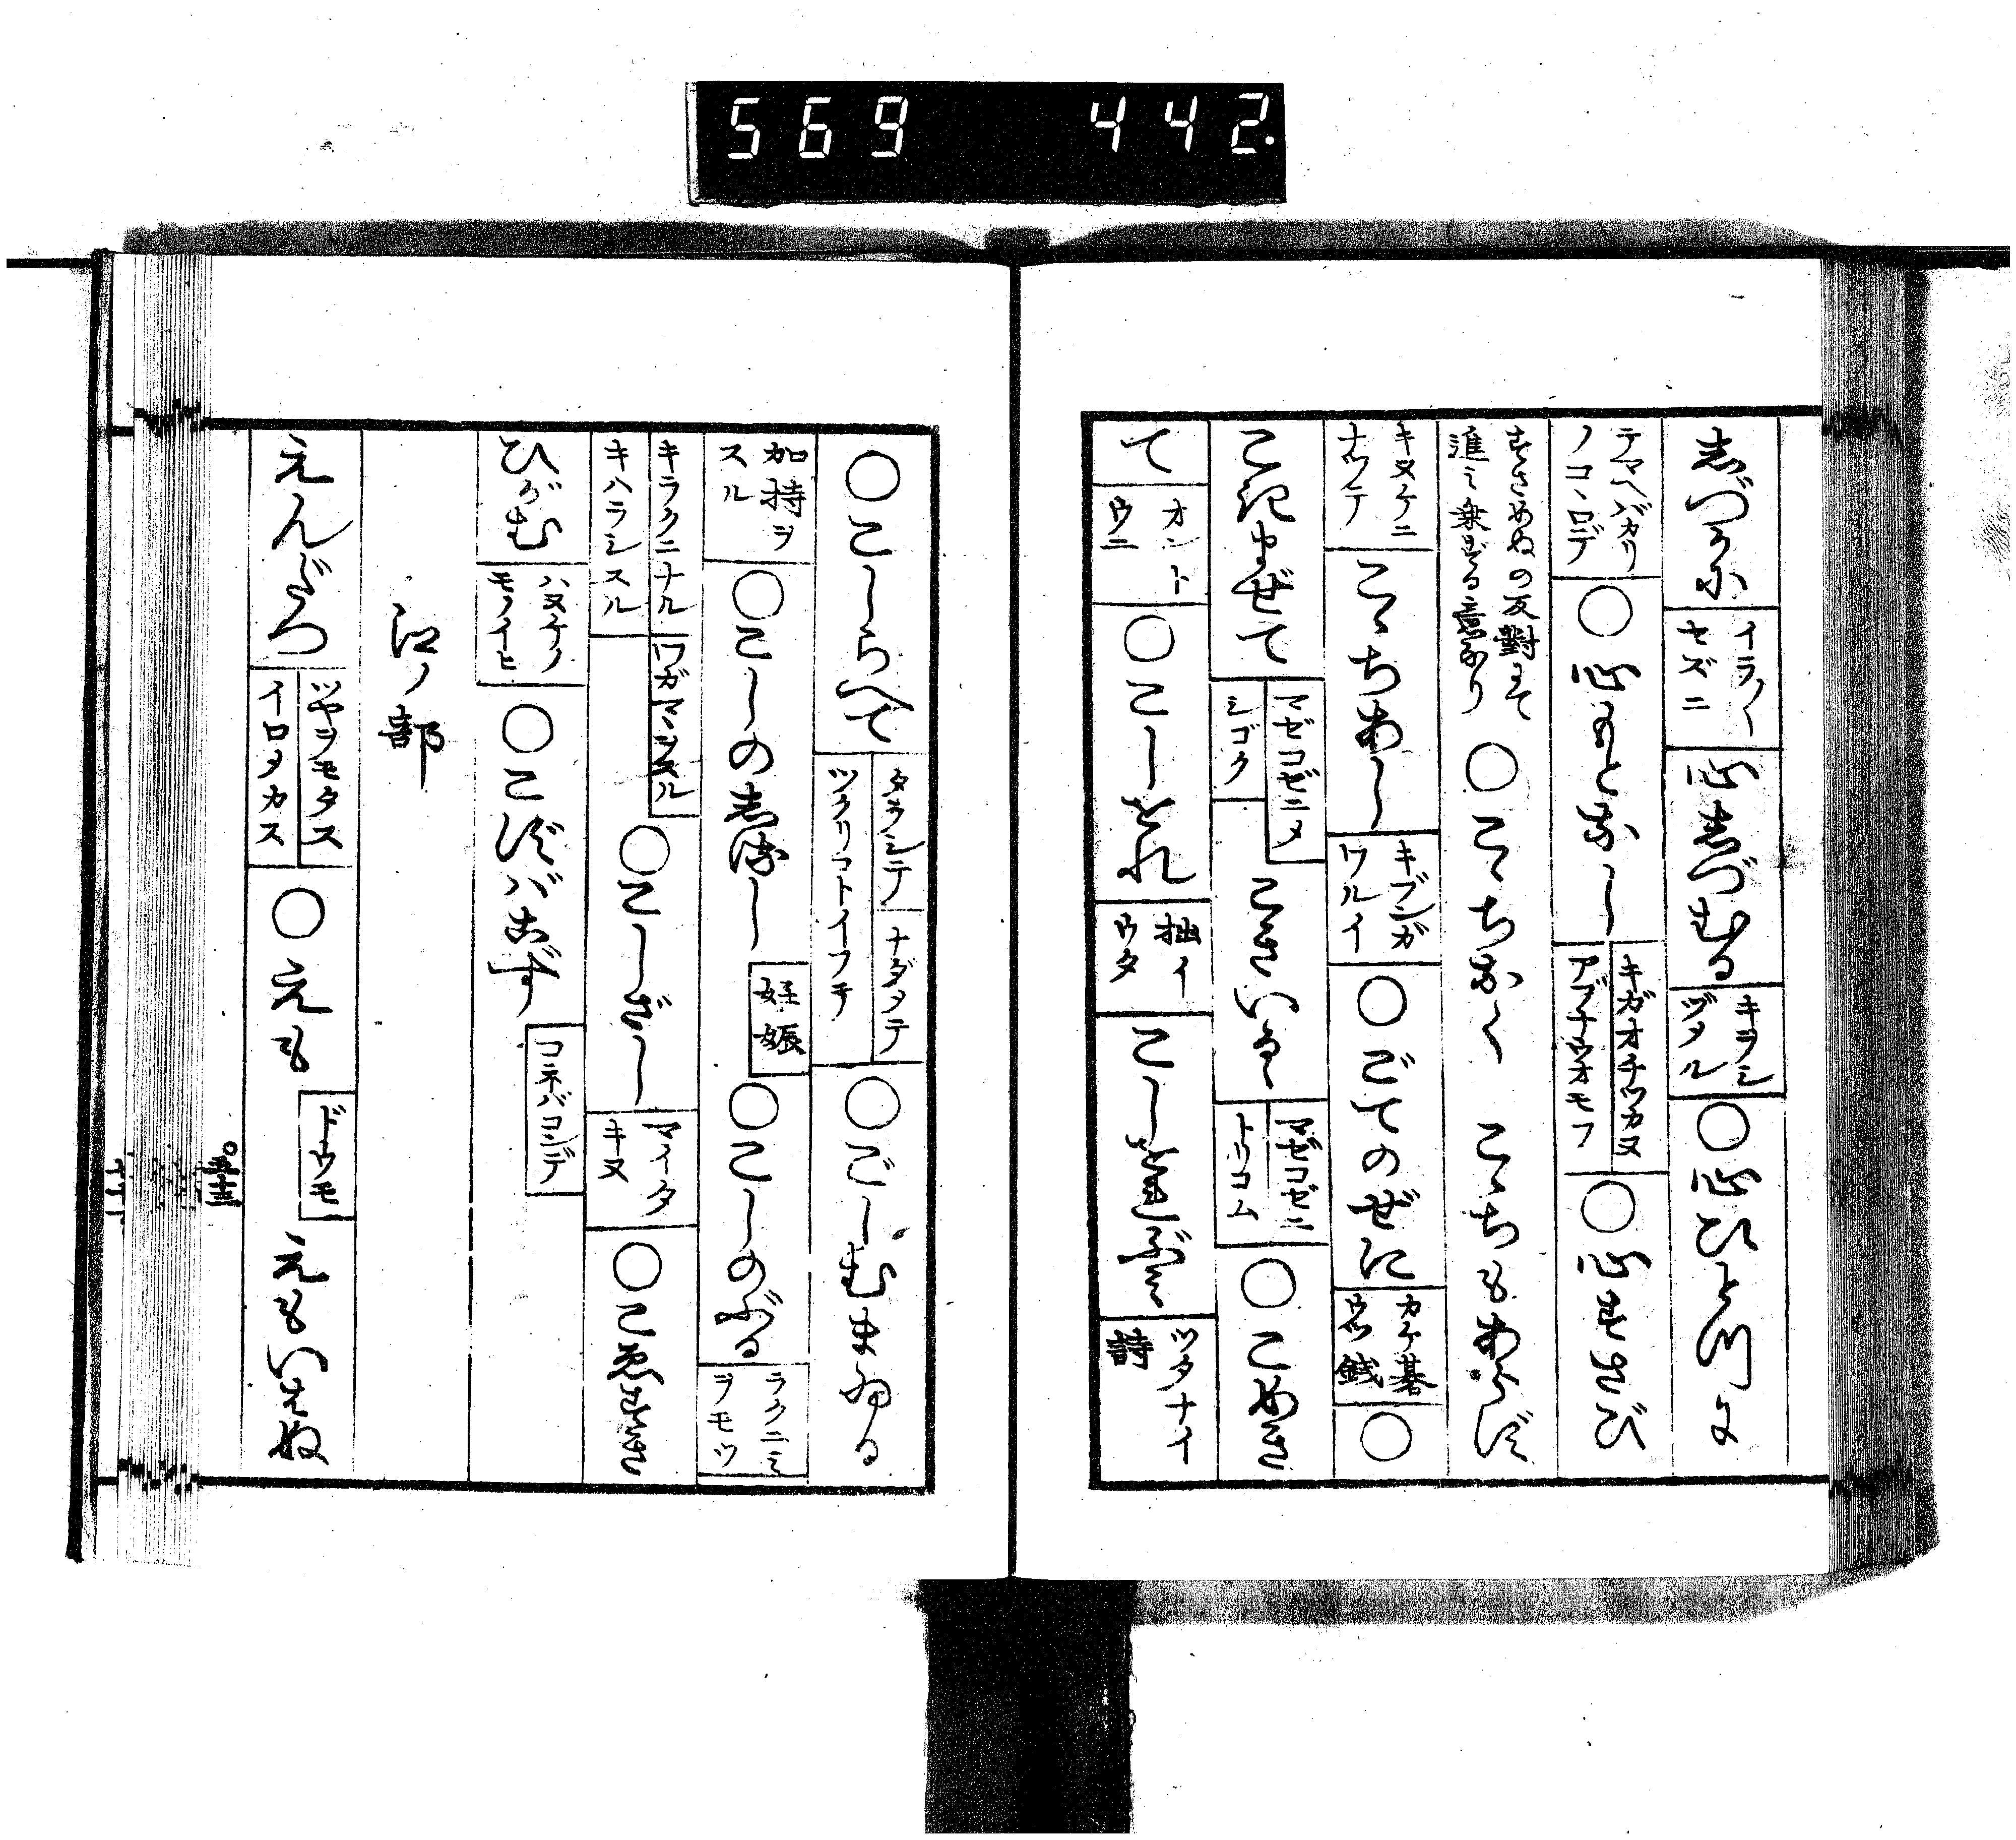 569 442.
志づかに イライラセズニ 心志づむる キヲシヅメル ○心ひとつに
テマヘバカリノコヽロデ ○心もとなし キガオチツカヌ アブナウオモフ ○心すさび
すさめぬの反對にて進ミ乗ずる意なり ○こゝちなく こゝちもあらず
キヌケニナツテ こゝちあし キブンガワルイ ○ごてのぜに カケ碁ウツ銭 ○
こきまぜて マゼコゼニメシゴク こきいるゝ マゼコゼニトリコム ○こめき
て オントウニ ○こしをれ 拙イウタ こしをれぶミ ツタナイ詩
○こしらへて タラシテ ナダメテ ツクリコトイフテ ○ごしむまゐる
加持ヲスル ○こしの志るし 妊娠 ○こしのぶる ラクニミヲモツ
キラクニナル ワガマヽスル キハラシスル ○こしざし マイタキヌ ○こゑすき
ひがむ ハヌケノモノイヒ ○こずバこず コネバコンデ
江ノ部
えんだつ ツヤヲモタス イロメカス ○えも ドウモ えもいはぬ
○五十三